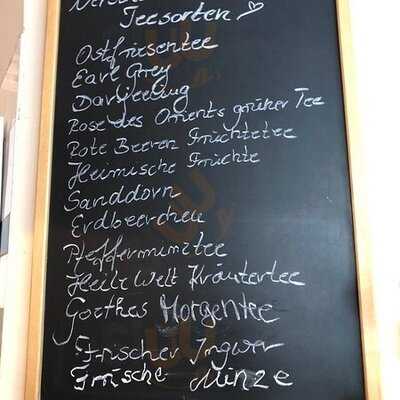 Teesorten
Ostfriesentee
Earl Grey
Darjeeling
Rose des Orients grüner Tee
Rote Beeren Früchtetee
Heimische Früchte
Sanddorn
Erdbeerchen
Pfefferminztee
Heile Welt Kräutertee
Goethes Morgentee
Frischer Ingwer
Frische Minze